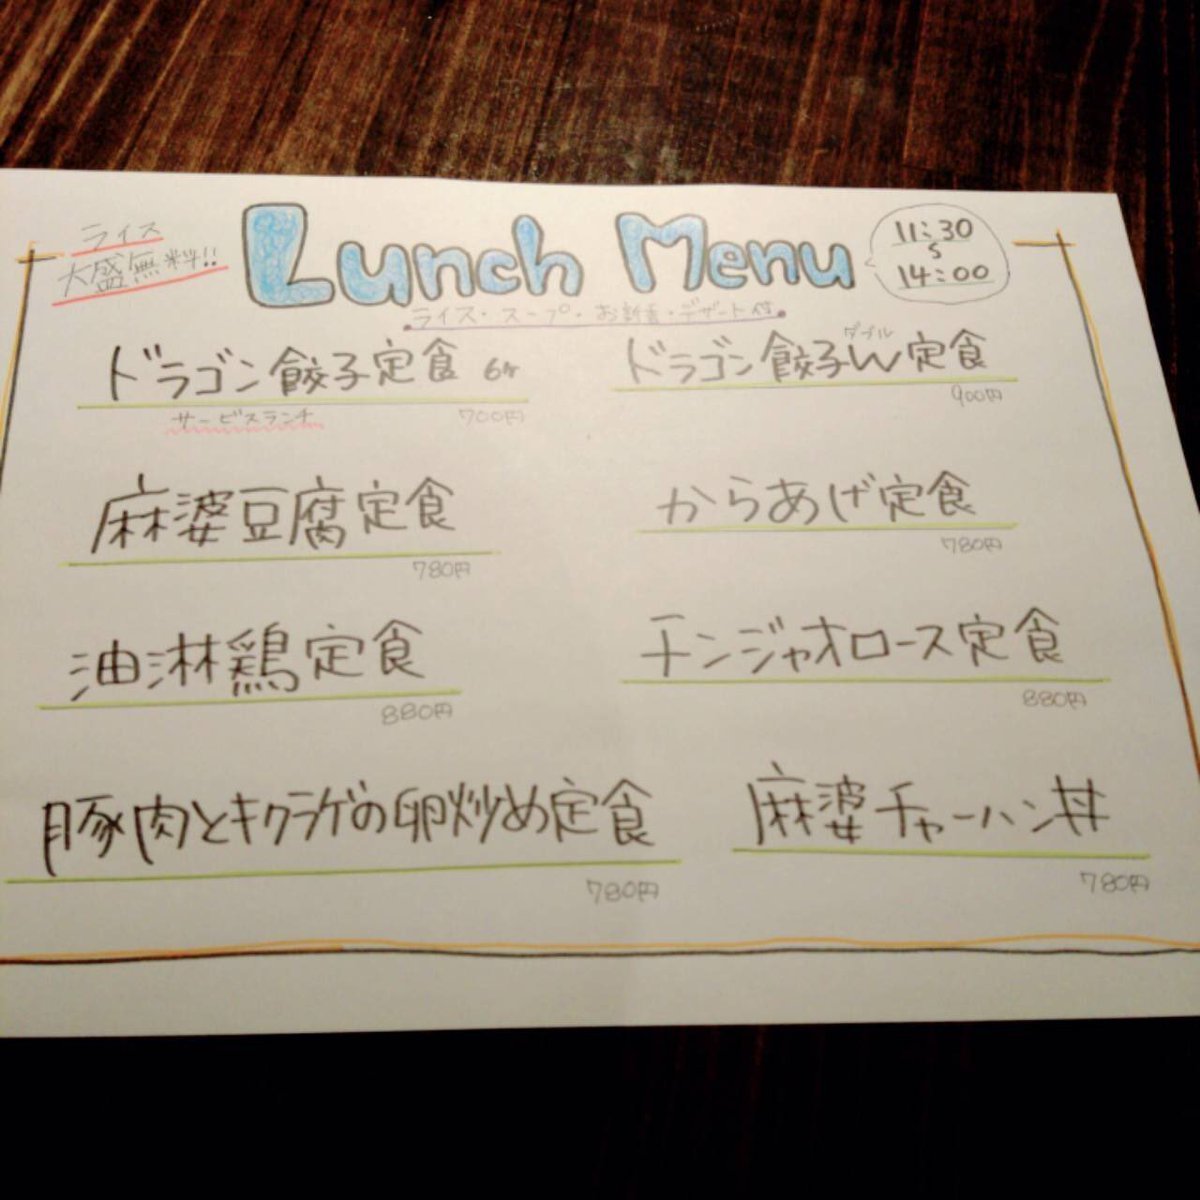 ライス
大盛無料!!
Lunch Menu
11:30
S
14:00
ライス・スープ・お新香・デザート付
ドラゴン餃子定食 6ケ
サービスランチ
700円
ダブル
ドラゴン餃子W定食
900円
麻婆豆腐定食
780円
からあげ定食
780円
油淋鶏定食
880円
チンジャオロース定食
880円
豚肉とキクラゲの卵炒め定食
780円
麻婆チャーハン丼
780円